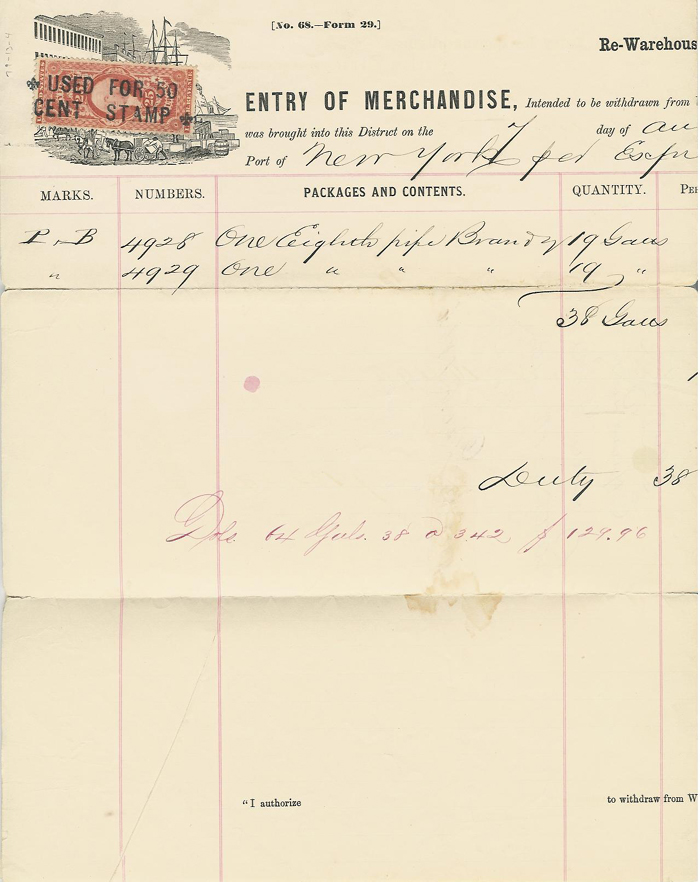 [No. 68.—Form 29.]
Re-Warehous
USED FOR 50
CENT STAMP
ENTRY OF MERCHANDISE, Intended to be withdrawn from
was brought into this District on the 7 day of au
Port of New York per
MARKS. NUMBERS. PACKAGES AND CONTENTS. QUANTITY. PER
P. B 4928 One Eighth pipe Brandy 19 Galls
" 4929 One " " " 19 "
38 Galls
Duty 38
Dols. 64 Gals. 38 @ 3.42 $ 129.96
"I authorize to withdraw from W